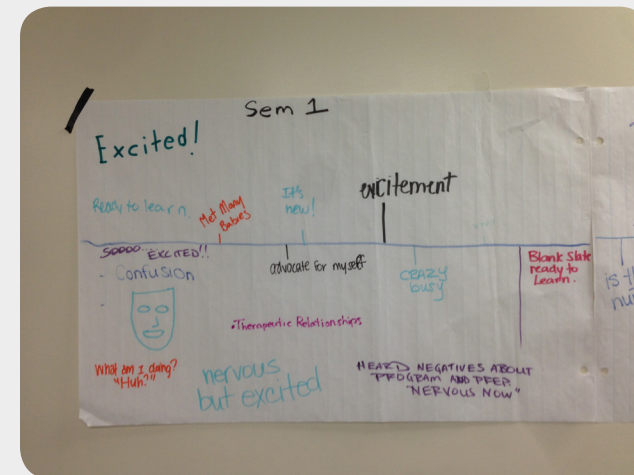 Sem 1
Excited!
Ready to learn.
Met Many
Babies
It's
new!
excitement
Soooo... EXCITED!!
- Confusion
-
advocate for myself
CRAZY
busy
Blank Slate
ready to
Learn.
is th
nu
• Therapeutic Relationships
What am I doing?
"Huh?"
nervous
but excited
HEARD NEGATIVES ABOUT
PROGRAM AND PREP.
"NERVOUS NOW"